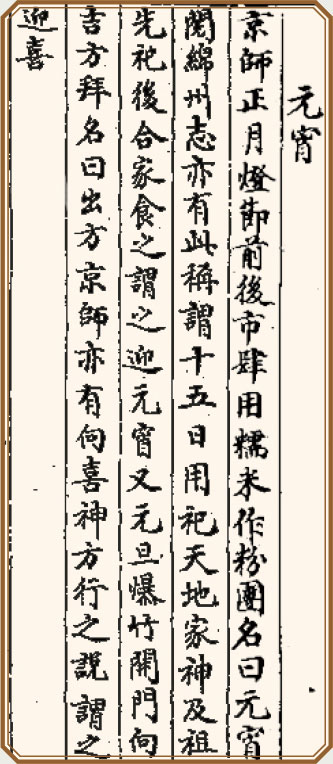 元宵
京師正月燈節前後市肆用糯米作粉團名曰元宵
閱綿州志亦有此稱謂十五日用祀天地家神及祖
先祀後合家食之謂之迎元宵又元旦爆竹開門向
吉方拜名曰出方京師亦有向喜神方行之說謂之
迎喜